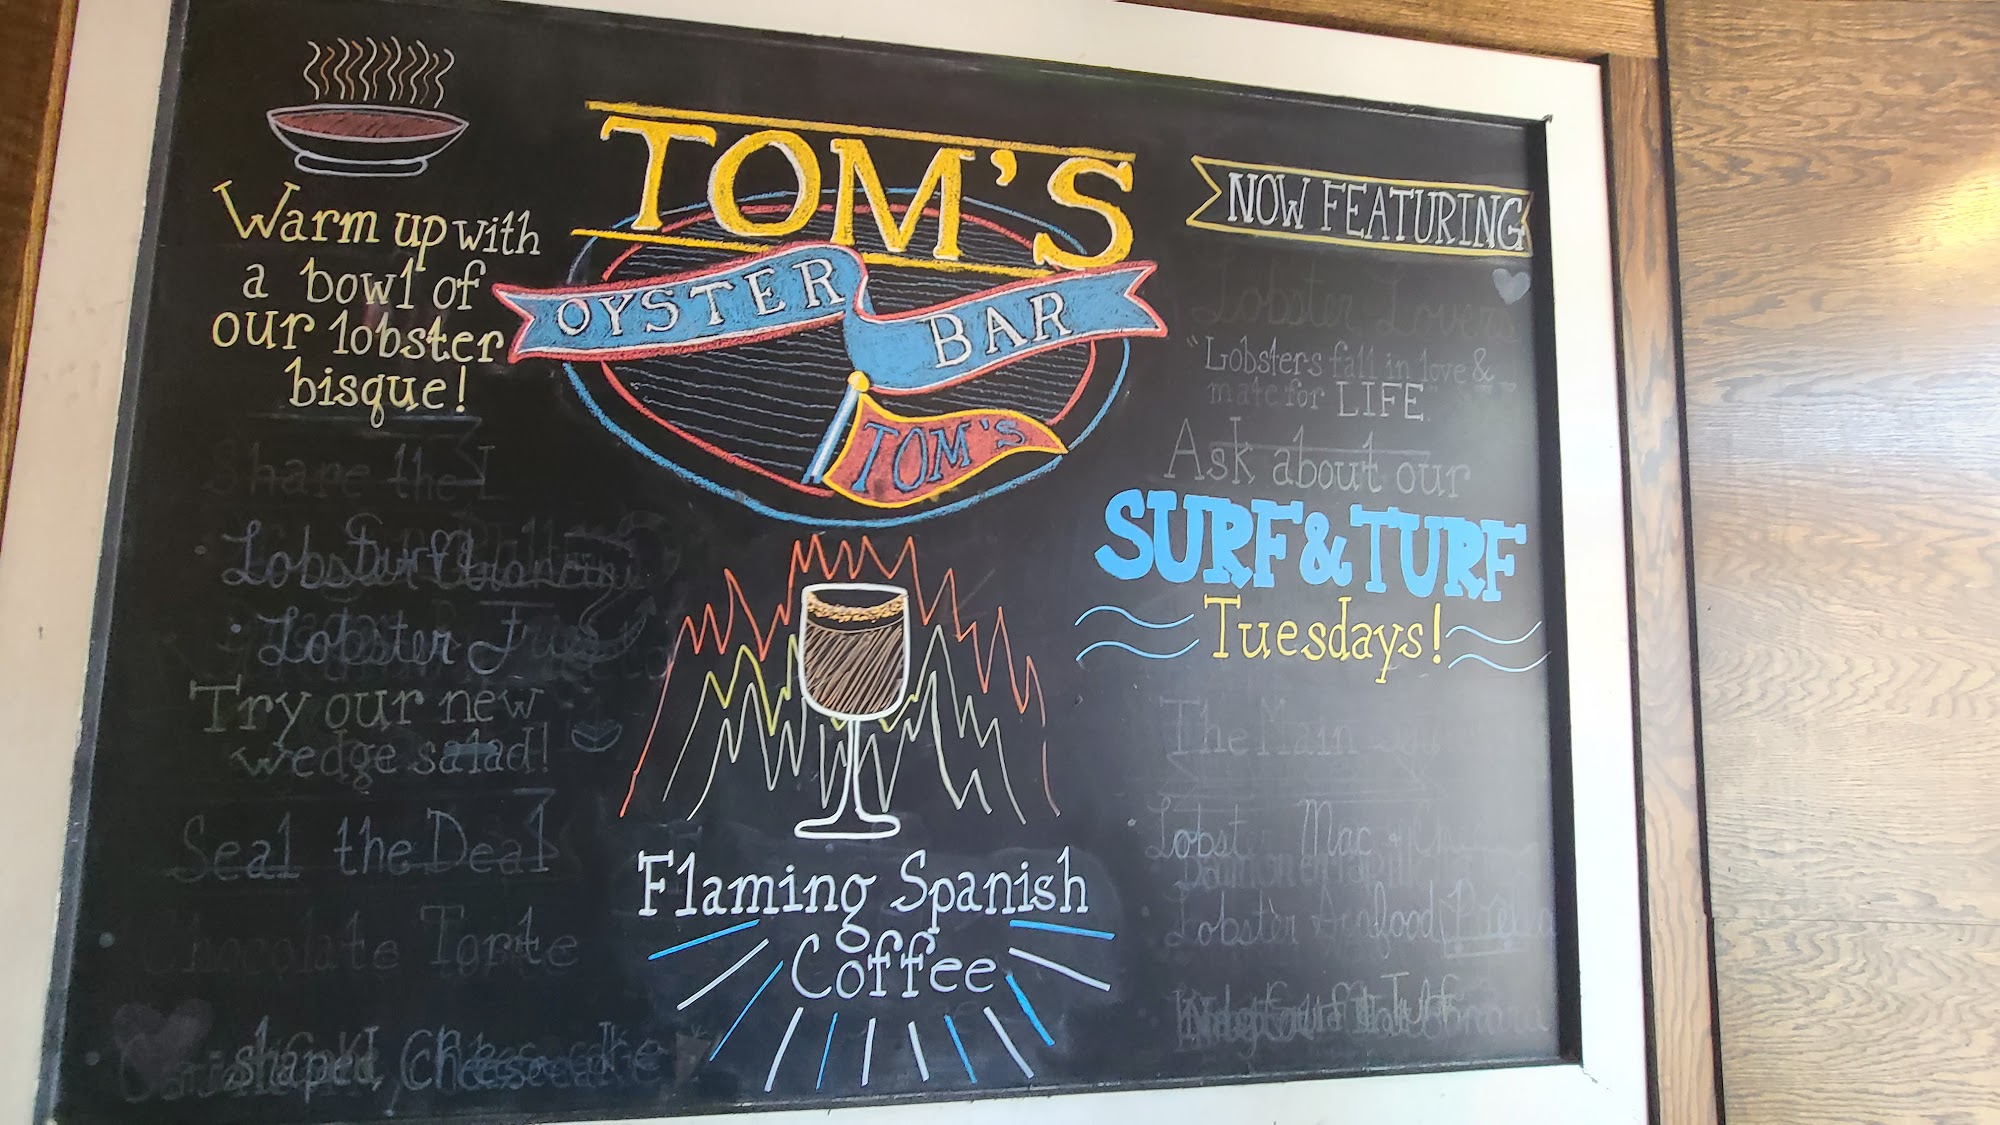 Warm up with
a bowl of
our lobster
bisque!
Share the
Lobster
Lobster
Try our new
wedge salad!
Seal the Deal
Chocolate Torte
shaped Cheesecake
TOM'S
OYSTER BAR
TOM'S
Flaming Spanish
Coffee
NOW FEATURING
Lobster Lovers
"Lobsters fall in love &
mate for LIFE
Ask about our
SURF & TURF
Tuesdays!
The Main
Lobster Mac
Lobster Seafood